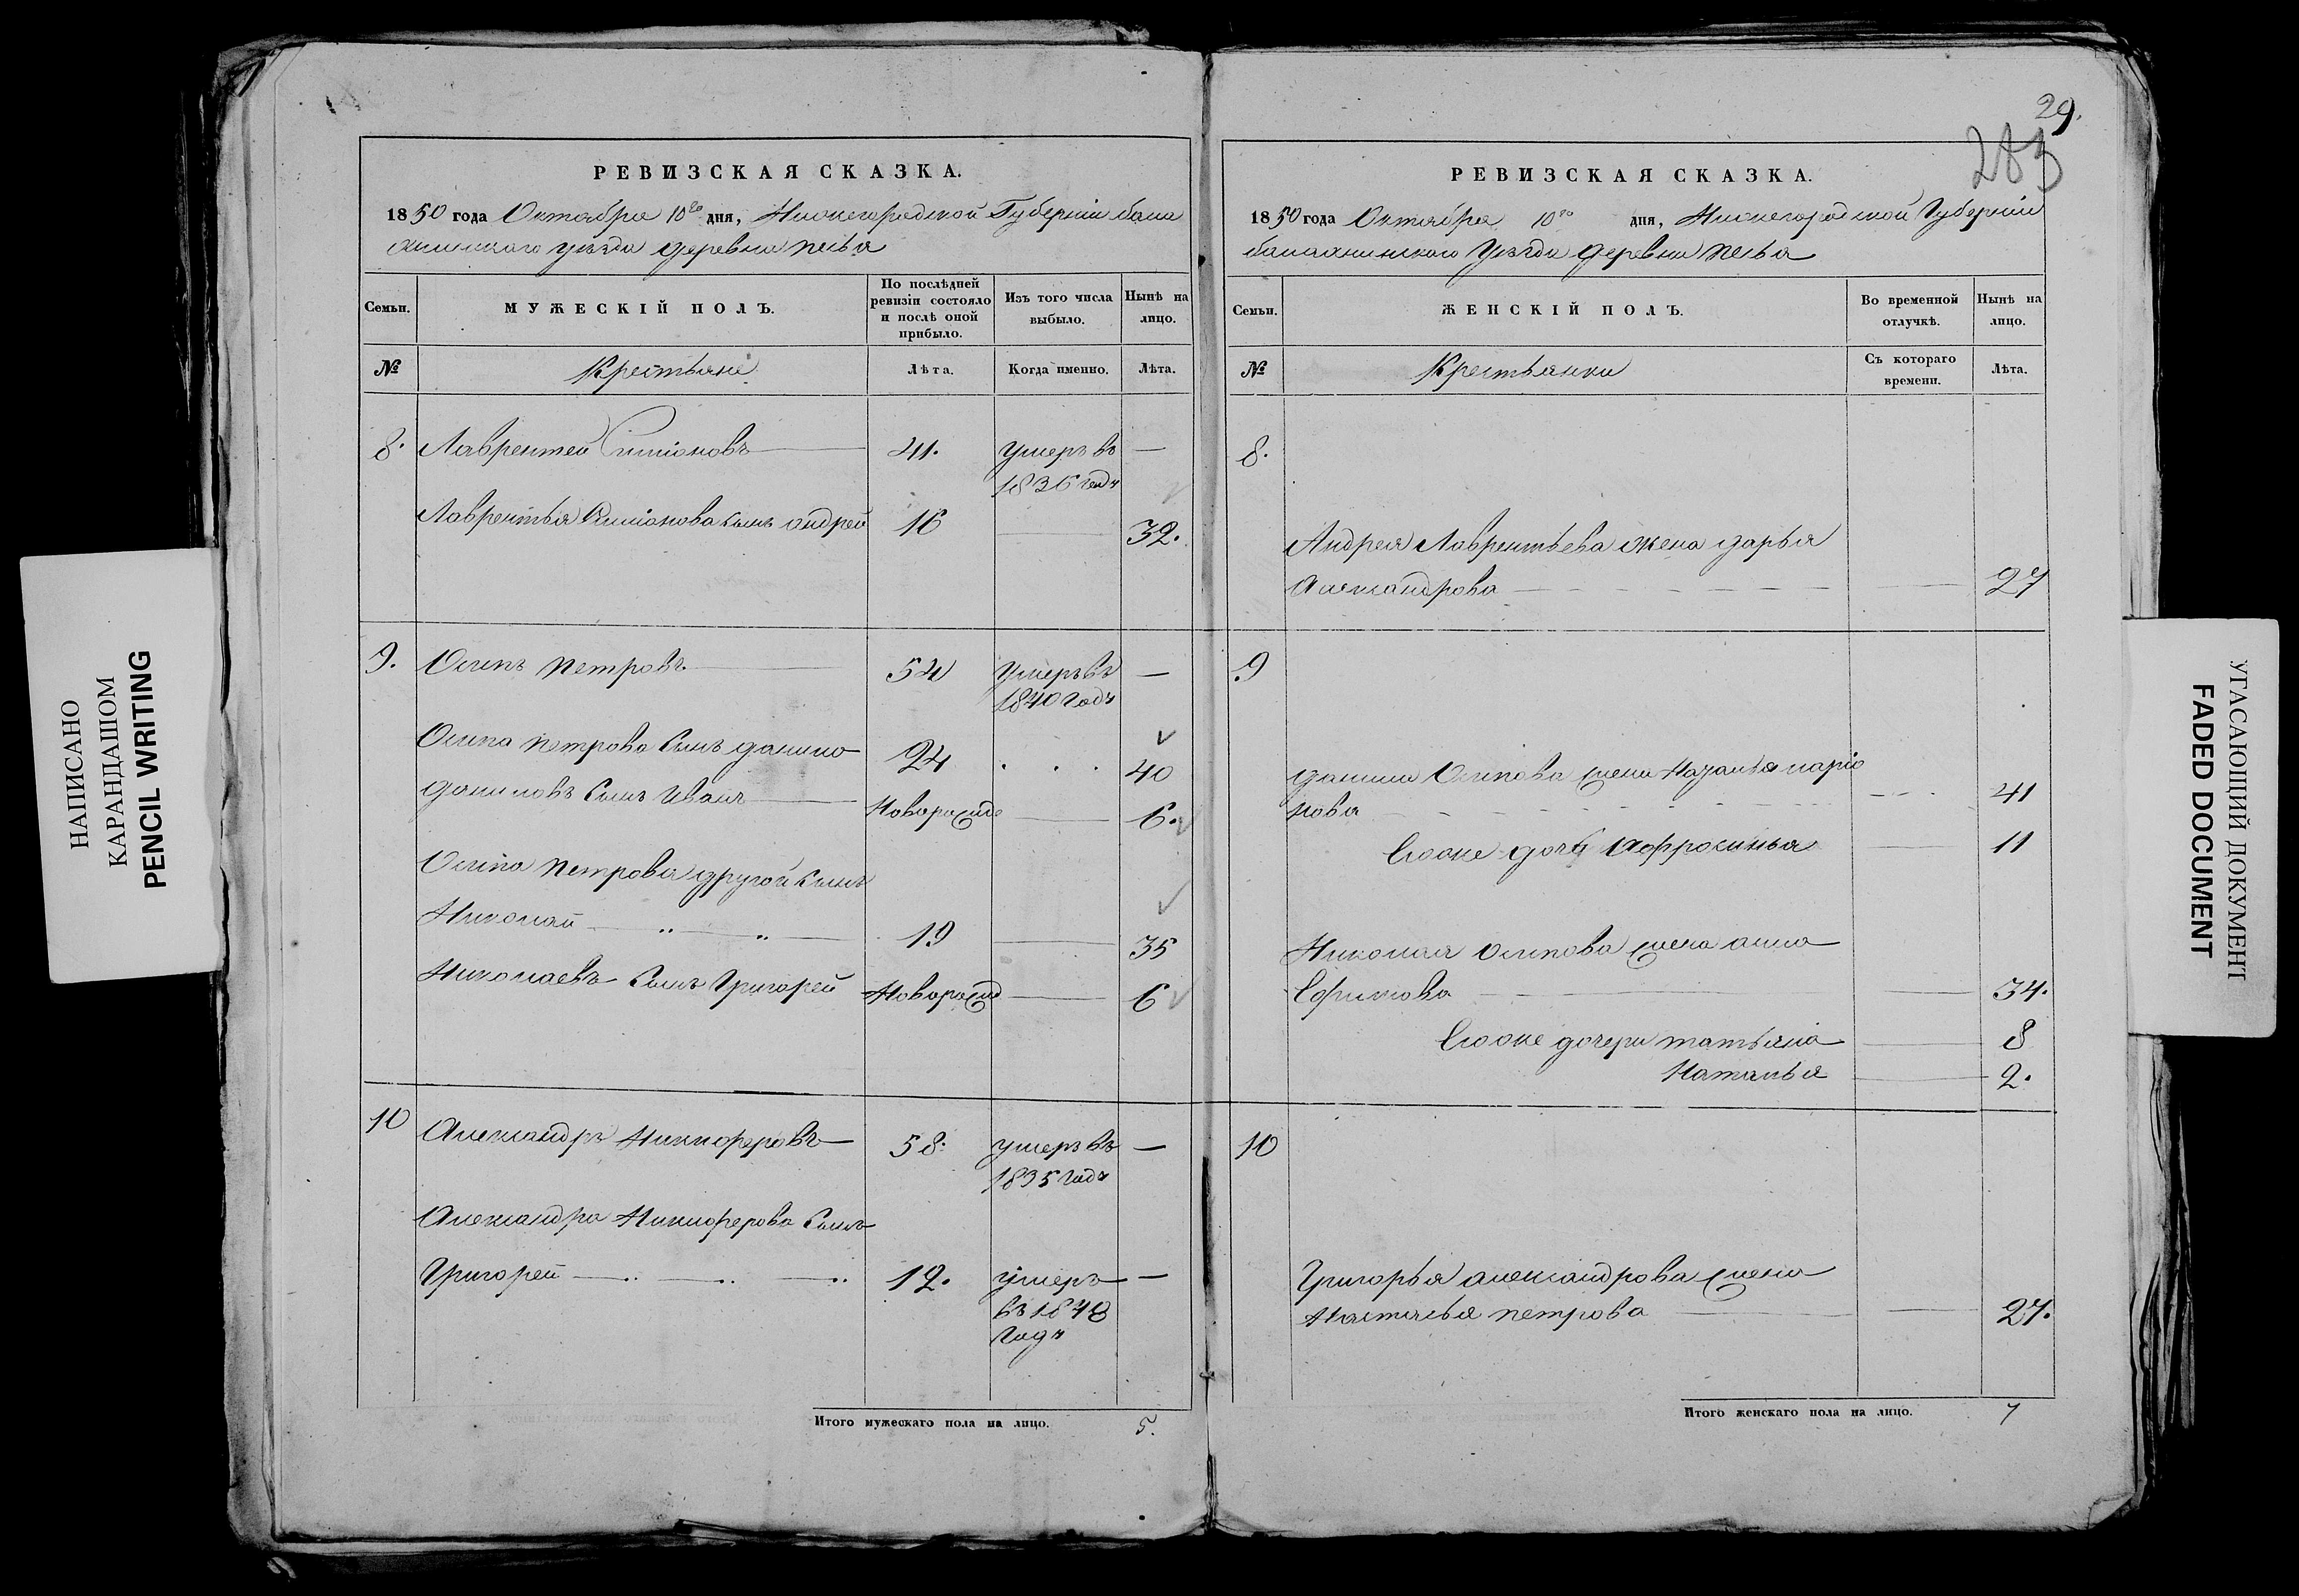 29.
283
РЕВИЗСКАЯ СКАЗКА.
1850 года Октября 10го дня, Нижегородской Губерніи бала
хнинскаго уѣзда деревни
Семьи.
МУЖЕСКІЙ ПОЛЪ.
По послѣдней ревизіи состояло и послѣ оной прибыло.
Изъ того числа выбыло.
Нынѣ на лицо.
№
Крестьяне
Лѣта.
Когда именно.
Лѣта.
8. Лаврентей 41. умеръ въ —
1836 году
Лаврентья сынъ андрей 16 32.
9. Осипъ петровъ 54 умеръ въ —
1840 году
Осипа петрова сынъ данило 24 40
даниловъ сынъ Иванъ Новорожде 6.
Осипа петрова другой сынъ
Николай 19 35
Николаевъ сынъ Григорей Новорожд 6
10 Александръ Никиферовъ 58. умеръ въ —
1835 году
Александра Никиферова сынъ
Григорей 12. умеръ —
въ 1848
году
Итого мужескаго пола на лицо. 5.
РЕВИЗСКАЯ СКАЗКА.
1850 года Октября 10го дня, Нижегородской Губерніи
балахнинскаго Уѣзда деревни
Семьи.
ЖЕНСКІЙ ПОЛЪ.
Во временной отлучкѣ.
Нынѣ на лицо.
№
Крестьянки
Съ котораго времени.
Лѣта.
8.
Андрея Лаврентьева жена дарья
Александрова 27
9
данилы Осипова жена
нова 41
Ево же дочь Афросинья 11
Николая осипова жена анна
Ефимова 34.
Ево же дочери татьяна 8
Наталья 2.
10
Григорья александрова жена
Настасья петрова 27.
Итого женскаго пола на лицо. 7
НАПИСАНО
КАРАНДАШОМ
PENCIL WRITING
УГАСАЮЩИЙ ДОКУМЕНТ
FADED DOCUMENT